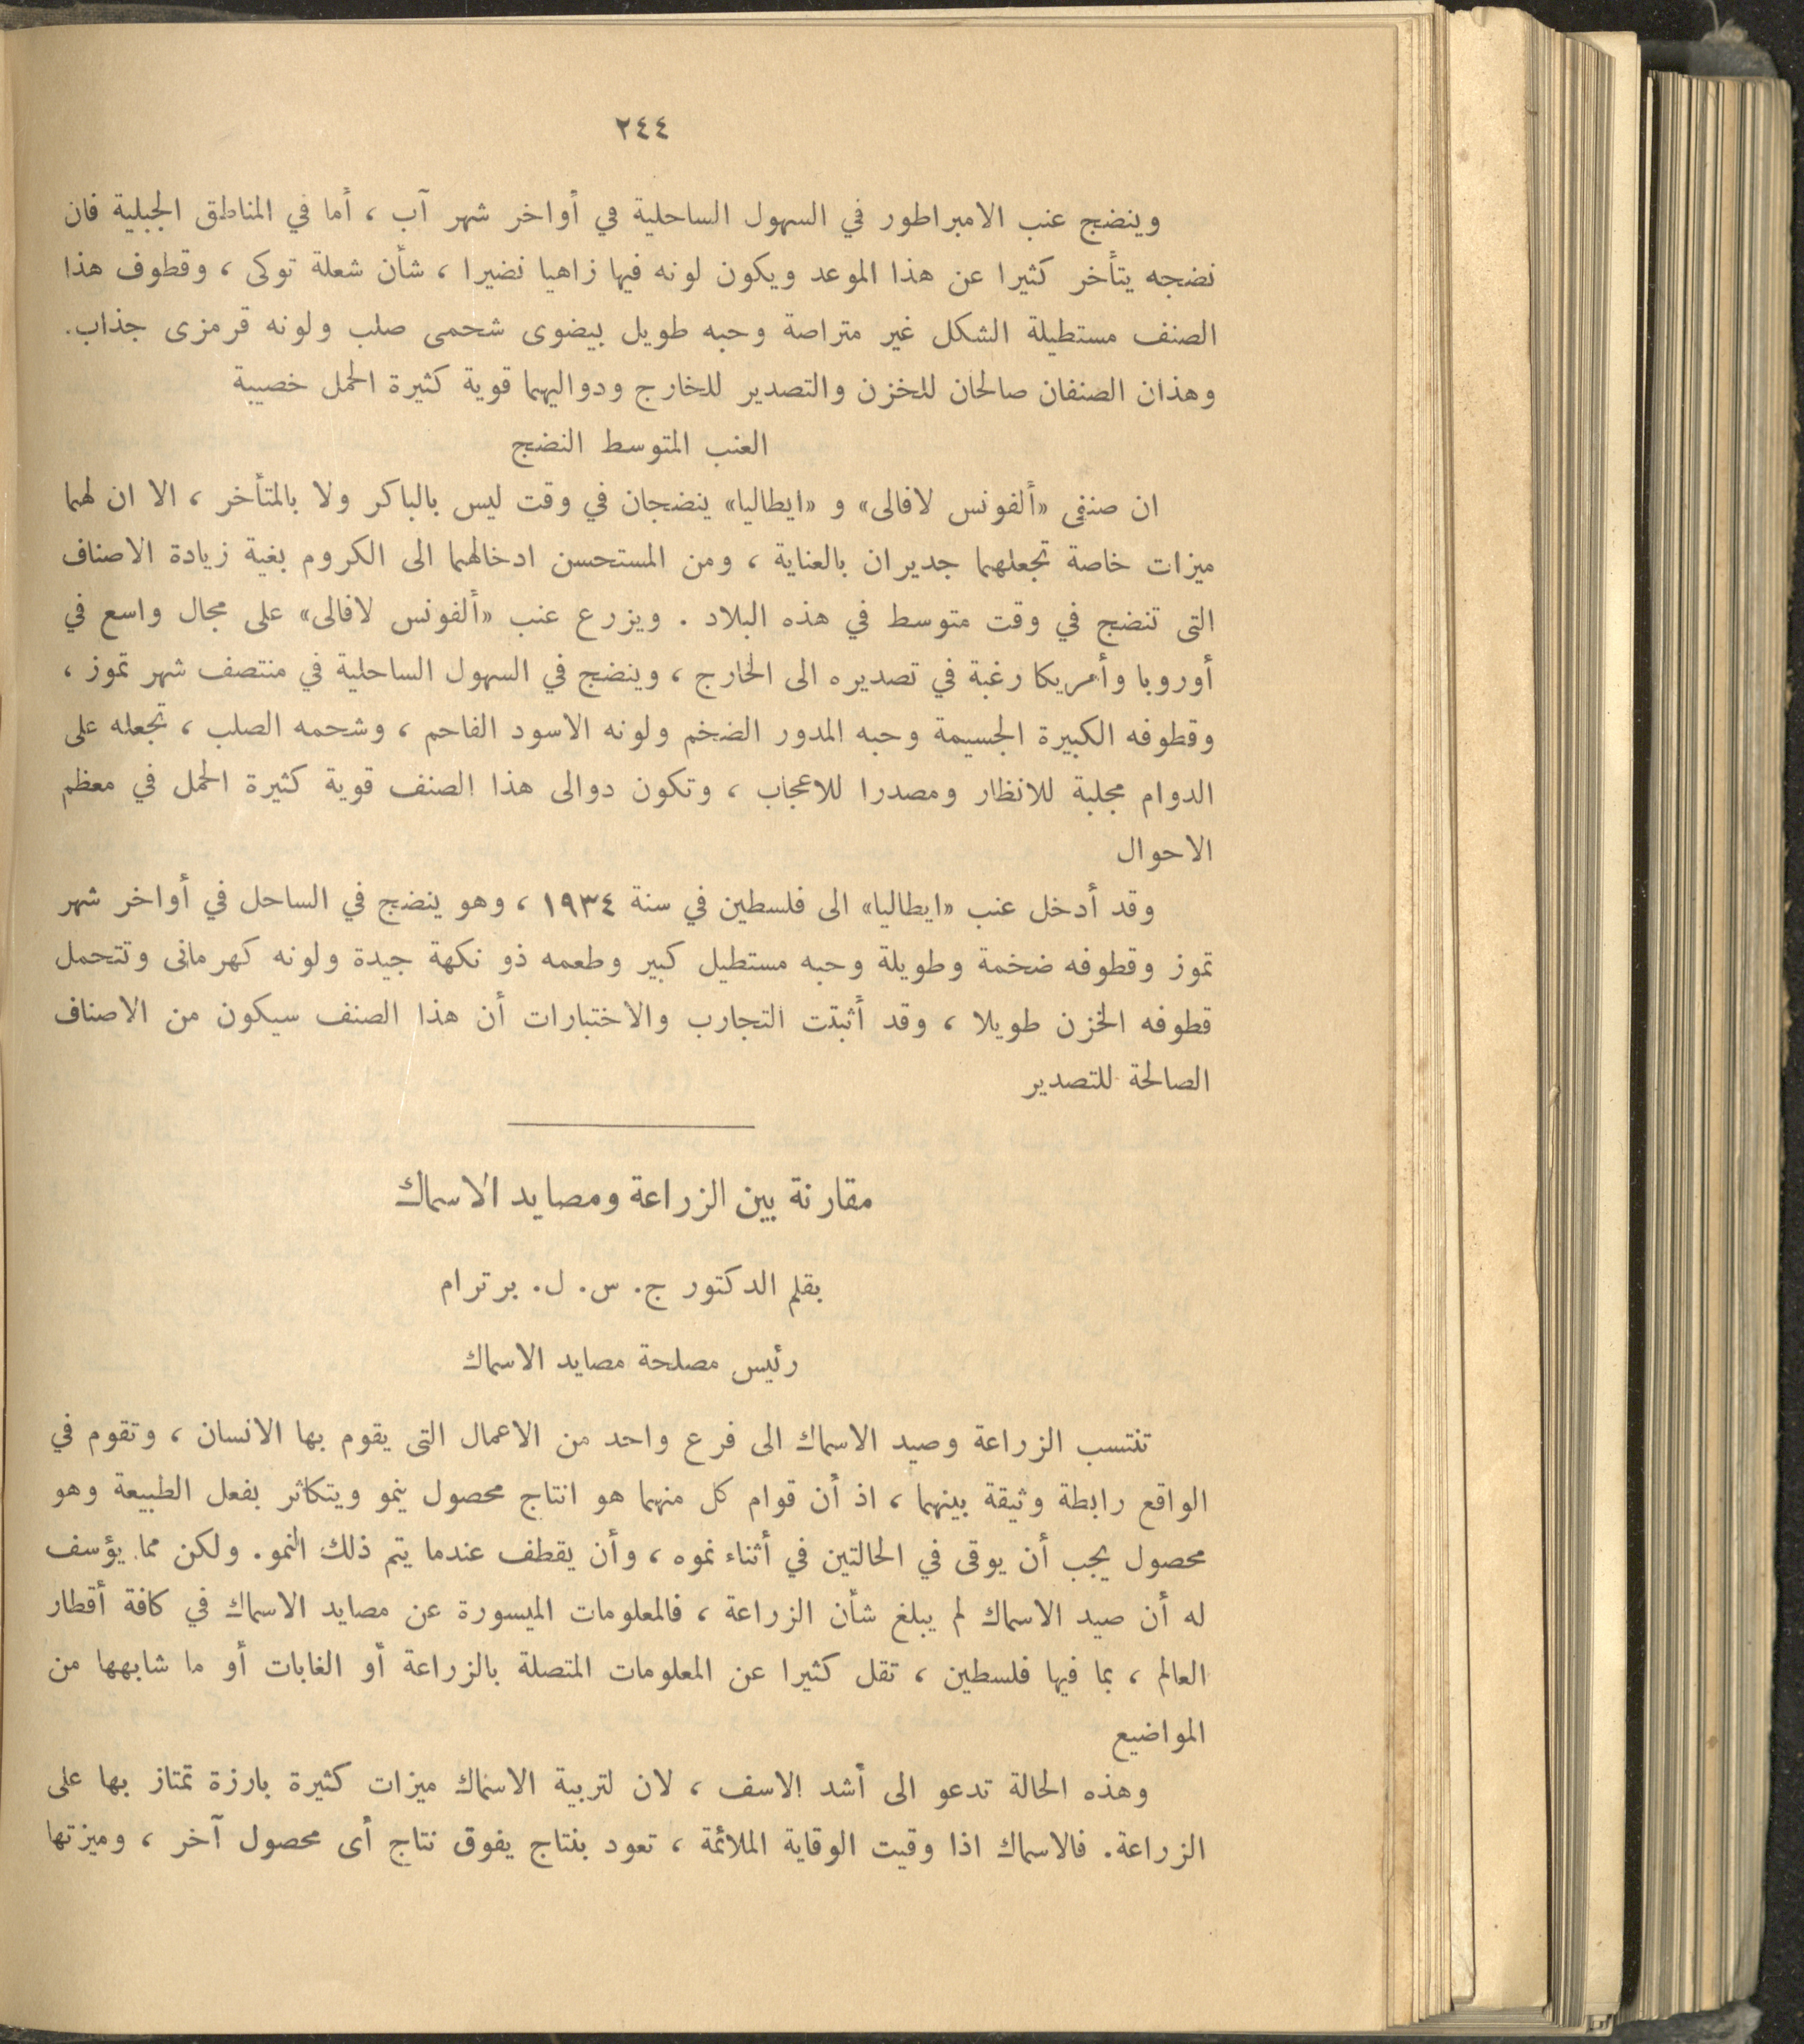 ٢٤٤
وينضج عنب الامبراطور في السهول الساحلية في أواخر شهر آب ، أما في المناطق الجبلية فان
نضجه يتأخر كثيرا عن هذا الموعد ويكون لونه فيها زاهيا نضيرا ، شأن شعلة توكى ، وقطوف هذا
الصنف مستطيلة الشكل غير متراصة وحبه طويل بيضوى شحمى صلب ولونه قرمزى جذاب.
وهذان الصنفان صالحان للخزن والتصدير للخارج ودواليهما قوية كثيرة الحمل خصيبة
العنب المتوسط النضج
ان صنفى «ألفونس لافالى» و «ايطاليا» ينضجان في وقت ليس بالباكر ولا بالمتأخر ، الا ان لهما
ميزات خاصة تجعلهما جديران بالعناية ، ومن المستحسن ادخالهما الى الكروم بغية زيادة الاصناف
التى تنضج في وقت متوسط في هذه البلاد . ويزرع عنب «ألفونس لافالى» على مجال واسع في
أوروبا وأمريكا رغبة في تصديره الى الخارج ، وينضج في السهول الساحلية في منتصف شهر تموز ،
وقطوفه الكبيرة الجسيمة وحبه المدور الضخم ولونه الاسود الفاحم ، وشحمه الصلب ، تجعله على
الدوام مجلبة للانظار ومصدرا للاعجاب ، وتكون دوالى هذا الصنف قوية كثيرة الحمل في معظم
الاحوال
وقد أدخل عنب «ايطاليا» الى فلسطين في سنة ١٩٣٤ ، وهو ينضج في الساحل في أواخر شهر
تموز وقطوفه ضخمة وطويلة وحبه مستطيل كبير وطعمه ذو نكهة جيدة ولونه كهرمانى وتتحمل
قطوفه الخزن طويلا ، وقد أثبتت التجارب والاختبارات أن هذا الصنف سيكون من الاصناف
الصالحة للتصدير
مقارنة بين الزراعة ومصايد الاسماك
بقلم الدكتور ج. س. ل. برترام
رئيس مصلحة مصايد الاسماك
تنتسب الزراعة وصيد الاسماك الى فرع واحد من الاعمال التى يقوم بها الانسان ، وتقوم في
الواقع رابطة وثيقة بينهما ، اذ أن قوام كل منهما هو انتاج محصول ينمو ويتكاثر بفعل الطبيعة وهو
محصول يجب أن يوقى في الحالتين في أثناء نموه ، وأن يقطف عندما يتم ذلك النمو. ولكن مما يؤسف
له أن صيد الاسماك لم يبلغ شأن الزراعة ، فالمعلومات الميسورة عن مصايد الاسماك في كافة أقطار
العالم ، بما فيها فلسطين ، تقل كثيرا عن المعلومات المتصلة بالزراعة أو الغابات أو ما شابهها من
المواضيع
وهذه الحالة تدعو الى أشد الاسف ، لان لتربية الاسماك ميزات كثيرة بارزة تمتاز بها على
الزراعة. فالاسماك اذا وقيت الوقاية الملائمة ، تعود بنتاج يفوق نتاج أى محصول آخر ، وميزتها